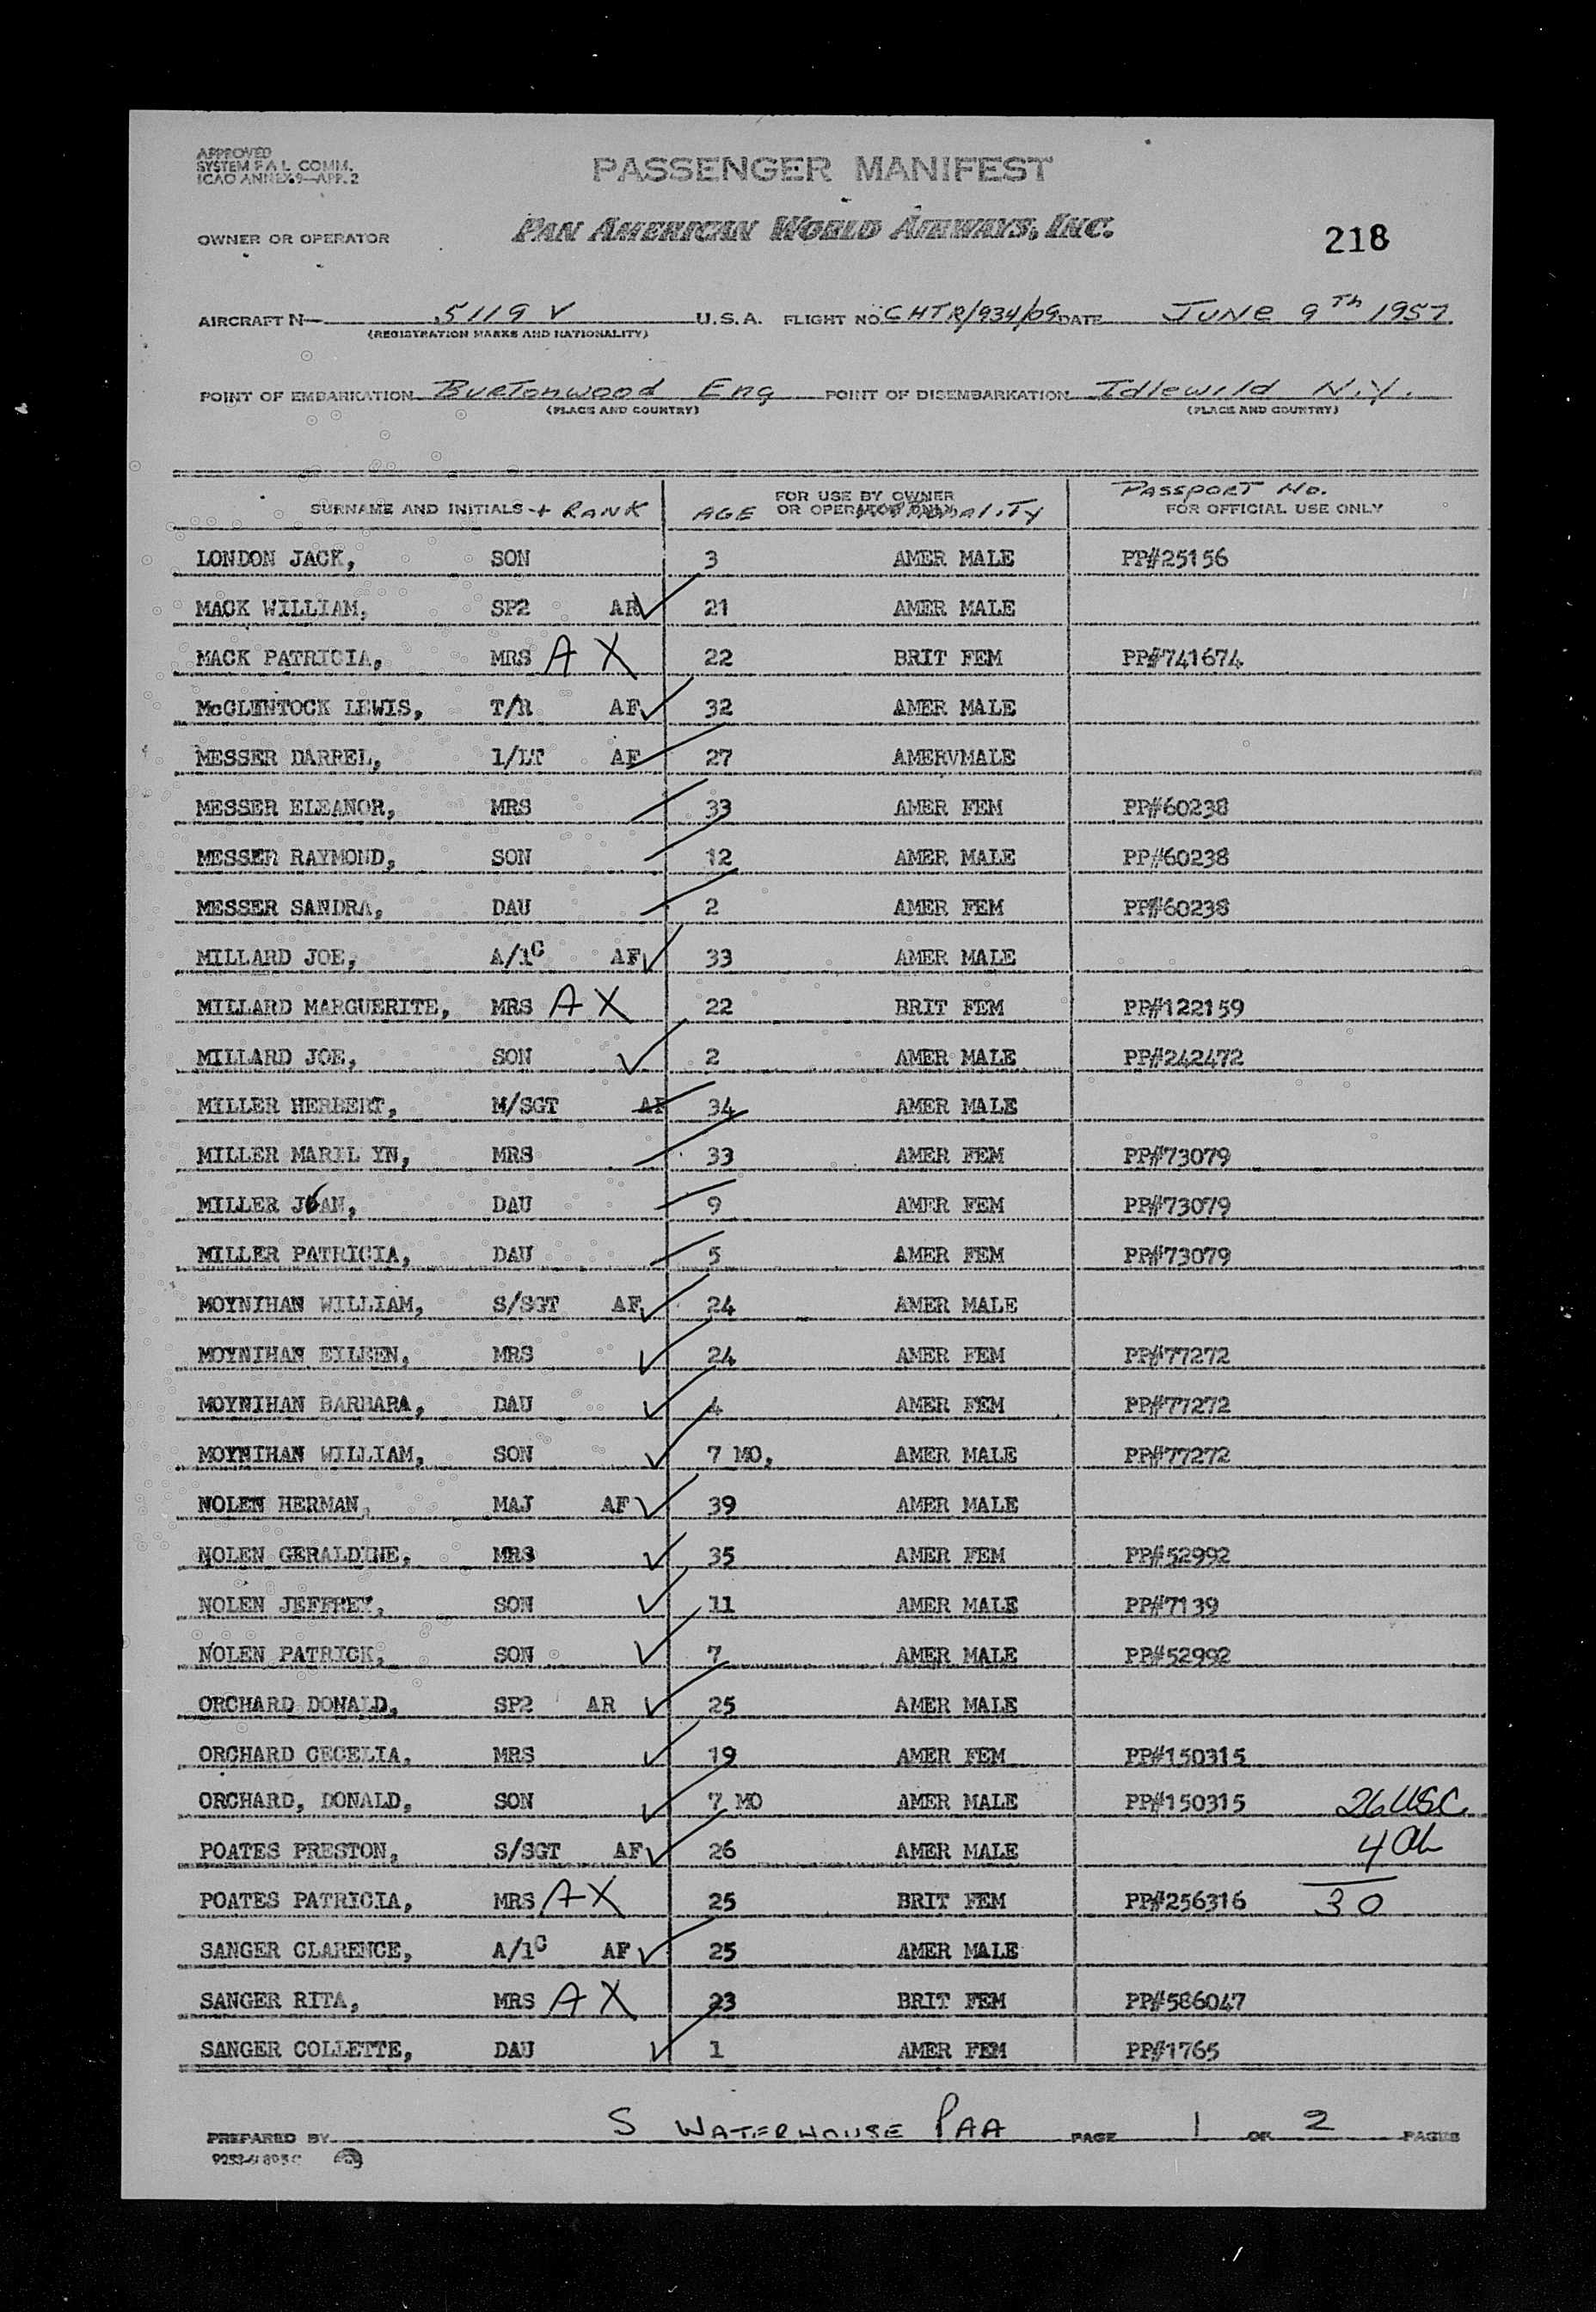 APPROVED
SYSTEM F.A.L. COMM.
ICAO ANNEX 9—APP. 2
PASSENGER MANIFEST
OWNER OR OPERATOR PAN AMERICAN WORLD AIRWAYS, INC.
218
AIRCRAFT N— 5119 V U.S.A. FLIGHT NO. CHTR/934/09 DATE JUNE 9Th 1957
(REGISTRATION MARKS AND NATIONALITY)
POINT OF EMBARKATION Burtonwood Eng POINT OF DISEMBARKATION Idlewild N.Y.
(PLACE AND COUNTRY) (PLACE AND COUNTRY)
SURNAME AND INITIALS + RANK AGE FOR USE BY OWNER OR OPERATOR ONLY NATIONALITY PASSPORT No. FOR OFFICIAL USE ONLY
LONDON JACK, SON 3 AMER MALE PP#25156
MACK WILLIAM, SP2 AR 21 AMER MALE
MACK PATRICIA, MRS A X 22 BRIT FEM PP#741674
McGLENTOCK LEWIS, T/R AF 32 AMER MALE
MESSER DARREL, 1/LT AF 27 AMERVMALE
MESSER ELEANOR, MRS 33 AMER FEM PP#60238
MESSER RAYMOND, SON 12 AMER MALE PP#60238
MESSER SANDRA, DAU 2 AMER FEM PP#60238
MILLARD JOE, A/1C AF 33 AMER MALE
MILLARD MARGUERITE, MRS A X 22 BRIT FEM PP#122159
MILLARD JOE, SON 2 AMER MALE PP#242472
MILLER HERBERT, M/SGT AF 34 AMER MALE
MILLER MARIL YN, MRS 33 AMER FEM PP#73079
MILLER JOAN, DAU 9 AMER FEM PP#73079
MILLER PATRICIA, DAU 5 AMER FEM PP#73079
MOYNIHAN WILLIAM, S/SGT AF 24 AMER MALE
MOYNIHAN EILEEN, MRS 24 AMER FEM PP#77272
MOYNIHAN BARBARA, DAU 4 AMER FEM PP#77272
MOYNIHAN WILLIAM, SON 7 MO. AMER MALE PP#77272
NOLEN HERMAN, MAJ AF 39 AMER MALE
NOLEN GERALDINE, MRS 35 AMER FEM PP#52992
NOLEN JEFFREY, SON 11 AMER MALE PP#7139
NOLEN PATRICK, SON 7 AMER MALE PP#52992
ORCHARD DONALD, SP2 AR 25 AMER MALE
ORCHARD CECELIA, MRS 19 AMER FEM PP#150315
ORCHARD, DONALD, SON 7 MO AMER MALE PP#150315 26 USC
POATES PRESTON, S/SGT AF 26 AMER MALE 4 al
POATES PATRICIA, MRS A X 25 BRIT FEM PP#256316 30
SANGER CLARENCE, A/1C AF 25 AMER MALE
SANGER RITA, MRS A X 23 BRIT FEM PP#586047
SANGER COLLETTE, DAU 1 AMER FEM PP#1765
PREPARED BY S WATERHOUSE PAA PAGE 1 OF 2 PAGES